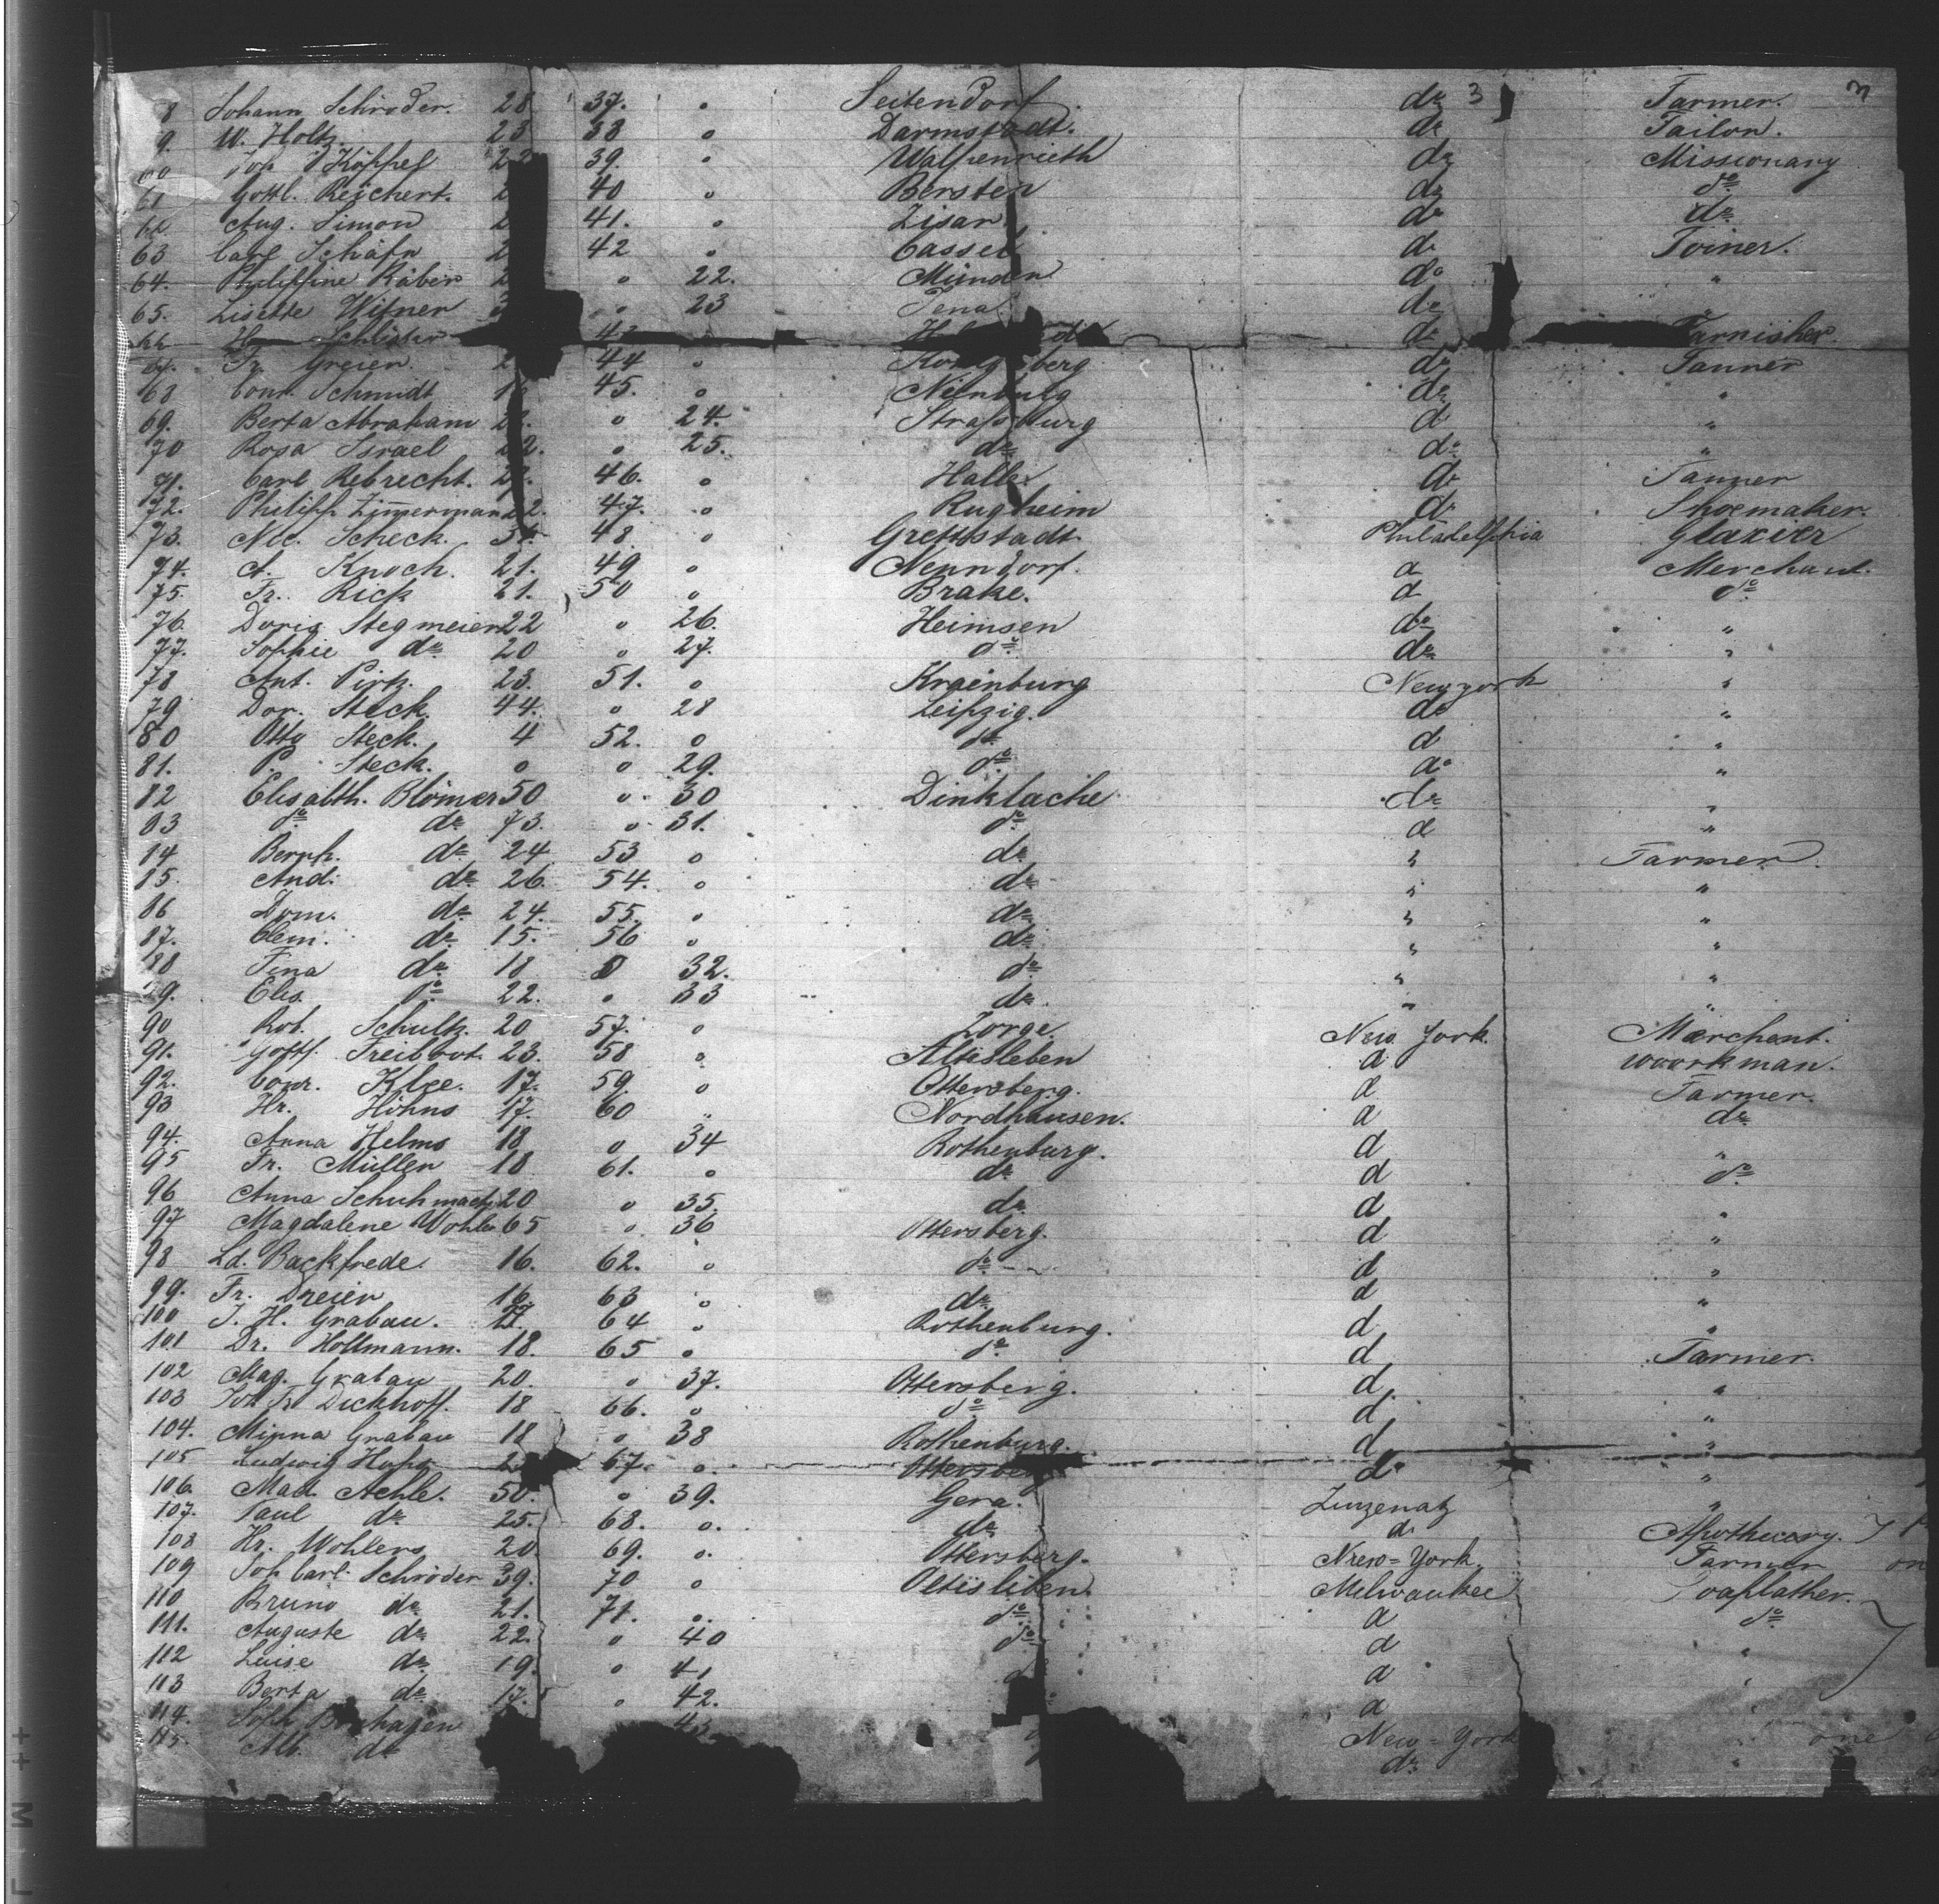 8 Johann Schröder. 28 37. o Seitendorf. do 3 Farmer. 3
9. W. Holtz 23 38 o Darmstadt. do Tailor.
60 Joh Köppel 22 39. o Walpenrieth do Missionary
61 Gottl. Reichert. 2 40 o Bersten do do
62 Aug. Simon 2 41. o Zisar do do
63 Carl Schäfer 2 42 o Cassel do Joiner.
64. Philippine Räber 2 o 22. Münden do "
65. Lisette Witner 3 o 23 Jena do "
66 Schlister 43 do
67. Fr. Greier. 2 44 o Königsberg do Tanner
68 Conr. Schmidt 1 45. o Nienburg do "
69. Berta Abraham 2 o 24. Strassburg d "
70 Rosa Israel 22. o 25. do do "
71. Carl Rebrecht. 2 46. o Halle do Tanner
72. Philipp Zimerman 22. 47. o Rugheim do Shoemaker.
73. Nic. Scheck. 3 48. o Grettstadt. Philadelphia Glazier
74. A. Knoch. 21. 49 o Nenndorf. d Merchant.
75. Fr. Rick 21. 50 o Brake. d do
76. Doris Stegmeier 22 o 26. Heimsen do "
77. Sophie do 20 o 27. do do "
78 Ant. Pirk. 23. 51. o Krainburg New york "
79 Dor. Steck. 44. o 28 Leipzig. do "
80 Otto Steck. 4 52. o do d "
81. P. Steck. o o 29. do do "
82 Elisabth. Blömer 50 o 30 Dinklache do "
83 do do 73. o 31. do d "
84 Bernh. do 24 53 o do " Farmer.
85. And. do 26. 54. o do " "
86 Dom. do 24. 55. o do " "
87. Clem. do 15. 56 o do " "
88 Tina do 18 o 32. do " "
89. Elis. do 22. o 33 do " "
90 Rob. Schultz. 20 57. o Zorge New York. Marchent.
91. Gottf. Freibrot. 23. 58 o Altisleben d woorkman.
92. Conr. Klee. 17. 59. o Ottersberg. d Farmer.
93 Hr. Höhns 17. 60 " Nordhausen. d do
94. Anna Helms 18 o 34 Rothenburg. d "
95 Fr. Müller 18 61. o do d do
96 Anna Schuhmach 20 o 35. do d "
97 Magdalene Wohler 65 o 36 Ottersberg. d "
98 Ld. Backfrede. 16. 62. o do d "
99. Fr. Dreier 16. 63 o do d "
100 J. H. Grabau. 17. 64 o Rothenburg. d "
101 Dr. Hollmann. 18. 65 o do d Farmer.
102 Mag. Grabau 20. o 37. Ottersberg. d. "
103 Joh Fr Dickhoff. 18 66. o do d "
104. Minna Grabau 18 o 38 Rothenburg. d "
105 Ludwig 2 67. o Ottersberg d "
106. Mad. Achle. 50. o 39. Gera. Zinzenatz "
107. Paul do 25. 68. o. do d. Apothecary.
108 Hr. Wohlers 20. 69. o. Ottersberg. New=York. Farmer on
109 Joh Carl Schröder 39. 70 o Oltisliben. Milwaukee
110 Bruno do 21. 71. o. do d do
111. Auguste do 22. o 40 do d "
112 Luise do 19. o 41 d "
113 Berta do 17. o 42. d "
114. Soph New=York one
115. Alb. do do "